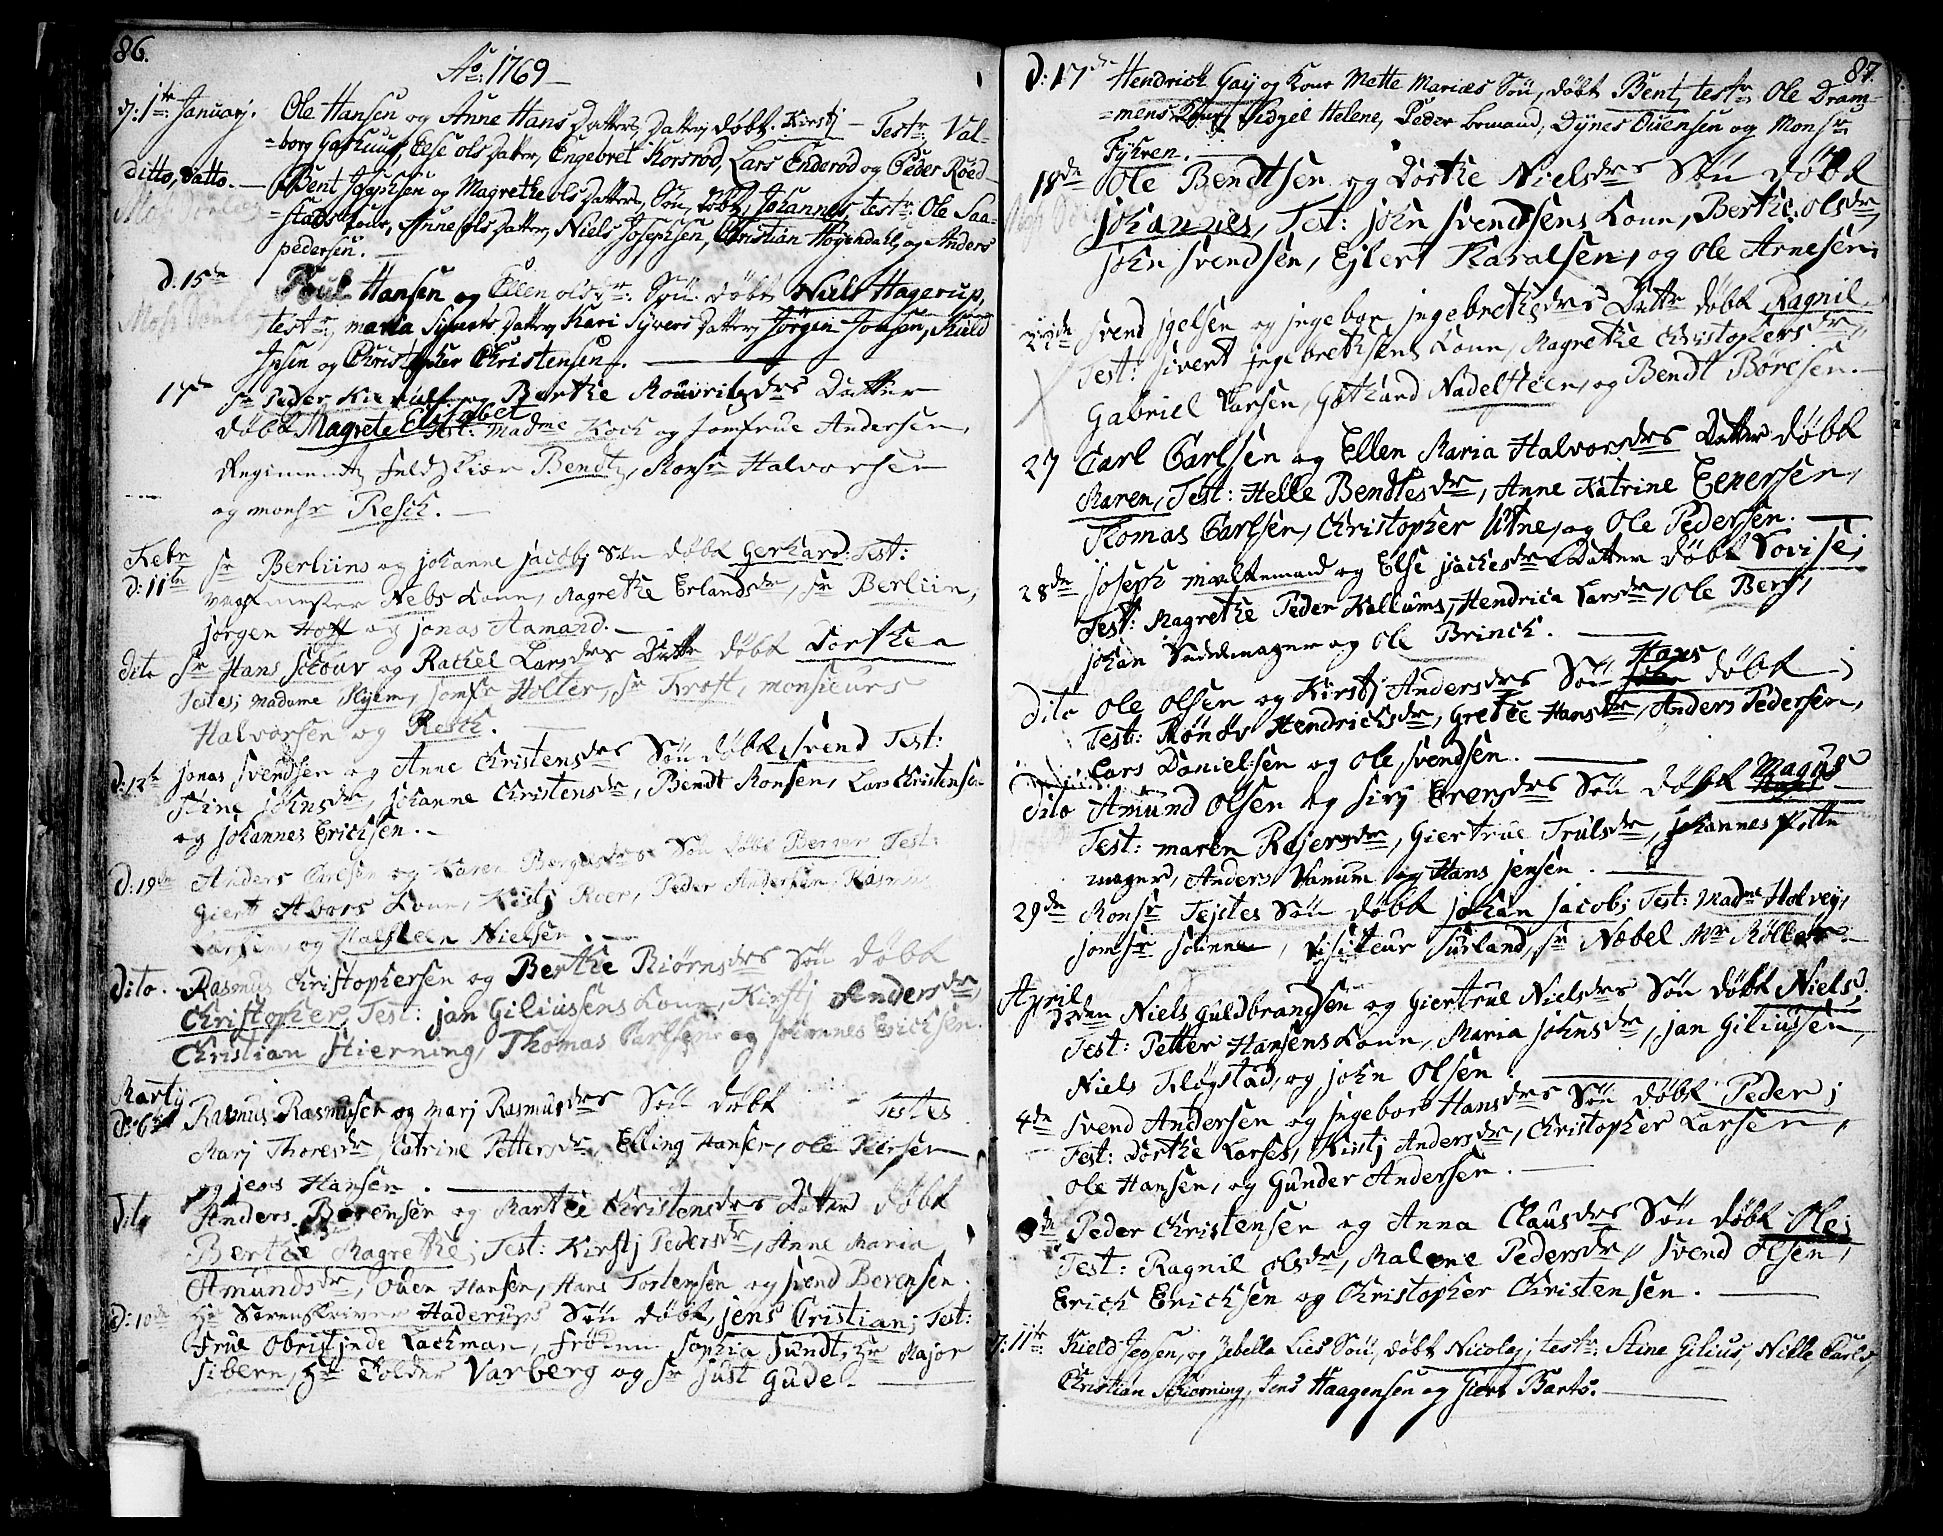 86.
Ao: 1769
d: 1te January. Ole Hansen og Anne Hans Datters Datter døbt Kirstj - Testr. Val-
=borg Gashuus, Else ols Datter, Engebret Korsrød, Lars Enderød og Peder Røed
ditto, datto. - Bent Josephsen og Magrethe ols Datters, Søn, døbt, Johannes, testr: Ole Saa-
=stads kone, Anne ols Datter, Niels Josephsen, Christian Høyendahl, og Anders
pedersen.
d: 15de Poul Hansen og Ellen olsdr: Søn døbt Niels Hagerup,
testr, maria Syvers Datter, Kari Syvers Datter, Jørgen Jonsen, Kield
Jpsen og Christopher Christensen.
17de Sr Peder og Berthe Datter
døbt Magrete Elisabet Test: Madme Koch og Jomfrue Andersen,
Regiments feldskiær Bendtz, Monsr Halvorsen
og monsr Resch.
Febr
d: 11te Sr Berliins og johanne jacobj Søn døbt Gerhard: Test:
Nebs Kone, Magrethe Erlandsdr, Sr Berliin,
jørgen Hoff og jonas Aamand.
dito Sr Hans Schouv og Rachel Larsdrs Dattr døbt Dorthea
Testes; Madame Hyem, jomfr Holter, Sr Trott, monsieurs
Halvorsen og Resch.
d: 12te jonas Svendsen og Anne Christensdrs Søn døbt Svend Test:
Stine johnsdr, johanne Christensdr, Bendt Monsen, Lars Christensen
og johannes Erichsen.
D: 19de Anders Carlsen og Karen Søn døbt Test:
Giert Kone, Kistj Roer, Peder Andersen, Rasmus
Larsen, og Halsteen Nielsen.
Dito. Rasmus Christophersen og Berthe Biørnsdrs Søn døbt
Christopher, Test: jan Giliusens Kone, Kirstj Andersdr,
Christian Hierning, Thomas Carlsen og johannes Erichsen.
Martj
d: 6te Rasmus Rasmusen og Marj Rasmusdrs Søn døbt Testes
Marj Thoresdr, Katrine Pettersdr, Elling Hansen, ole Peersen
og jens Hansen.
Dito Anders Børensen og Marthe Christensdrs Datter døbt
Berthe Magrethe; Test: Kirstj Pedersdr, Anne Maria
Amundsdr, Ouen Hansen, Hans Torstensen og Svend Berensen.
D: 10de Hr Sorenskriver Haderups Søn døbt, jens Cristian; Test:
Frue Obristjnde Lachman, Frøken Sophia Sundt, Hr Major
Sibern, Hr Varberg og Sr just Gude.
87.
D: 17de Hendrich Gay og Kone Mette Maries Søn, døbt Bent, testr: Ole Dram-
=mens Kone, Sidzel Helene, Peder Lomand, Dynes Ouensen og Monsr
Fyhren.
18de Ole Bendtsen og Dorthe Nielsdrs Søn døbt
johannes, Test: john Svendsens Kone, Berthe olsdr,
john Svendsen, Ejlert Haralsen, og ole Arnesen.
Svend jgelsen og jngebor jngebrethsdrs Dattr døbt Ragnil
Test: Sivert jngebrethsens Kone, Magrethe Christophersdr,
Gabriel Larsen, Gothard Nadelsteen, og Bendt Børesen.
27 Carl Carlsen og Ellen Maria Halvorsdrs Datter døbt
Maren, Test: Helle Bendtesdr, Anne Katrine Evensen,
Thomas Carlsen, Christopher Utne, og Ole Pedersen.
28de joseph og Else jachesdrs Datter døbt Lovise;
Test: Magrethe Peder Kallums, Hendrica Larsdr, Ole Berg,
johan Sadelmager og Ole Brinch.
Dito ole olsen og Kirstj Andersdrs Søn Hans døbt;
Test: Rønøv Hendrichsdr, Grethe Hansdr, Anders Pedersen,
Lars Danielsen og ole Svendsen.
Dito Amund olsen og Sirj Erensdrs Søn døbt Magus
Test: maren Rejersdr, Giertrue Trulsdr, johannes Potte
mager, Anders Vanum og Hans jensen.
29de Monsr Tejstes Søn døbt johan jacob; Test: Madme Holvej,
jomfr, Visiteur Surland, Sr Næbel Mr Møller.
April
Niels Guldbrandsen og Giertrue Nielsdrs Søn døbt Niels
Test: Petter Hansens Kone, Maria johnsdr, jan Giliussen,
Niels Kløgstad, og john Olsen.
4de Svend Andersen og jngebor Hansdrs Søn døbt Peder;
Test: Dorthe Larses, Kirstj Andersdr, Christopher Larsen,
ole Hansen, og Gunder Andersen.
Peder Christensen og Anna Clausdrs Søn døbt Ole;
Test: Ragnil olsdr, Malene Pedersdr, Svend olsen,
Erich Erichsen og Christopher Christensen.
d: 11te Kield Jepsen, og Zebella Lies Søn, døbt Nicolaj; testr: Stine Gilius, Nille Carls,
Christian Schierning, Jens Haagensen og Giert Barts.